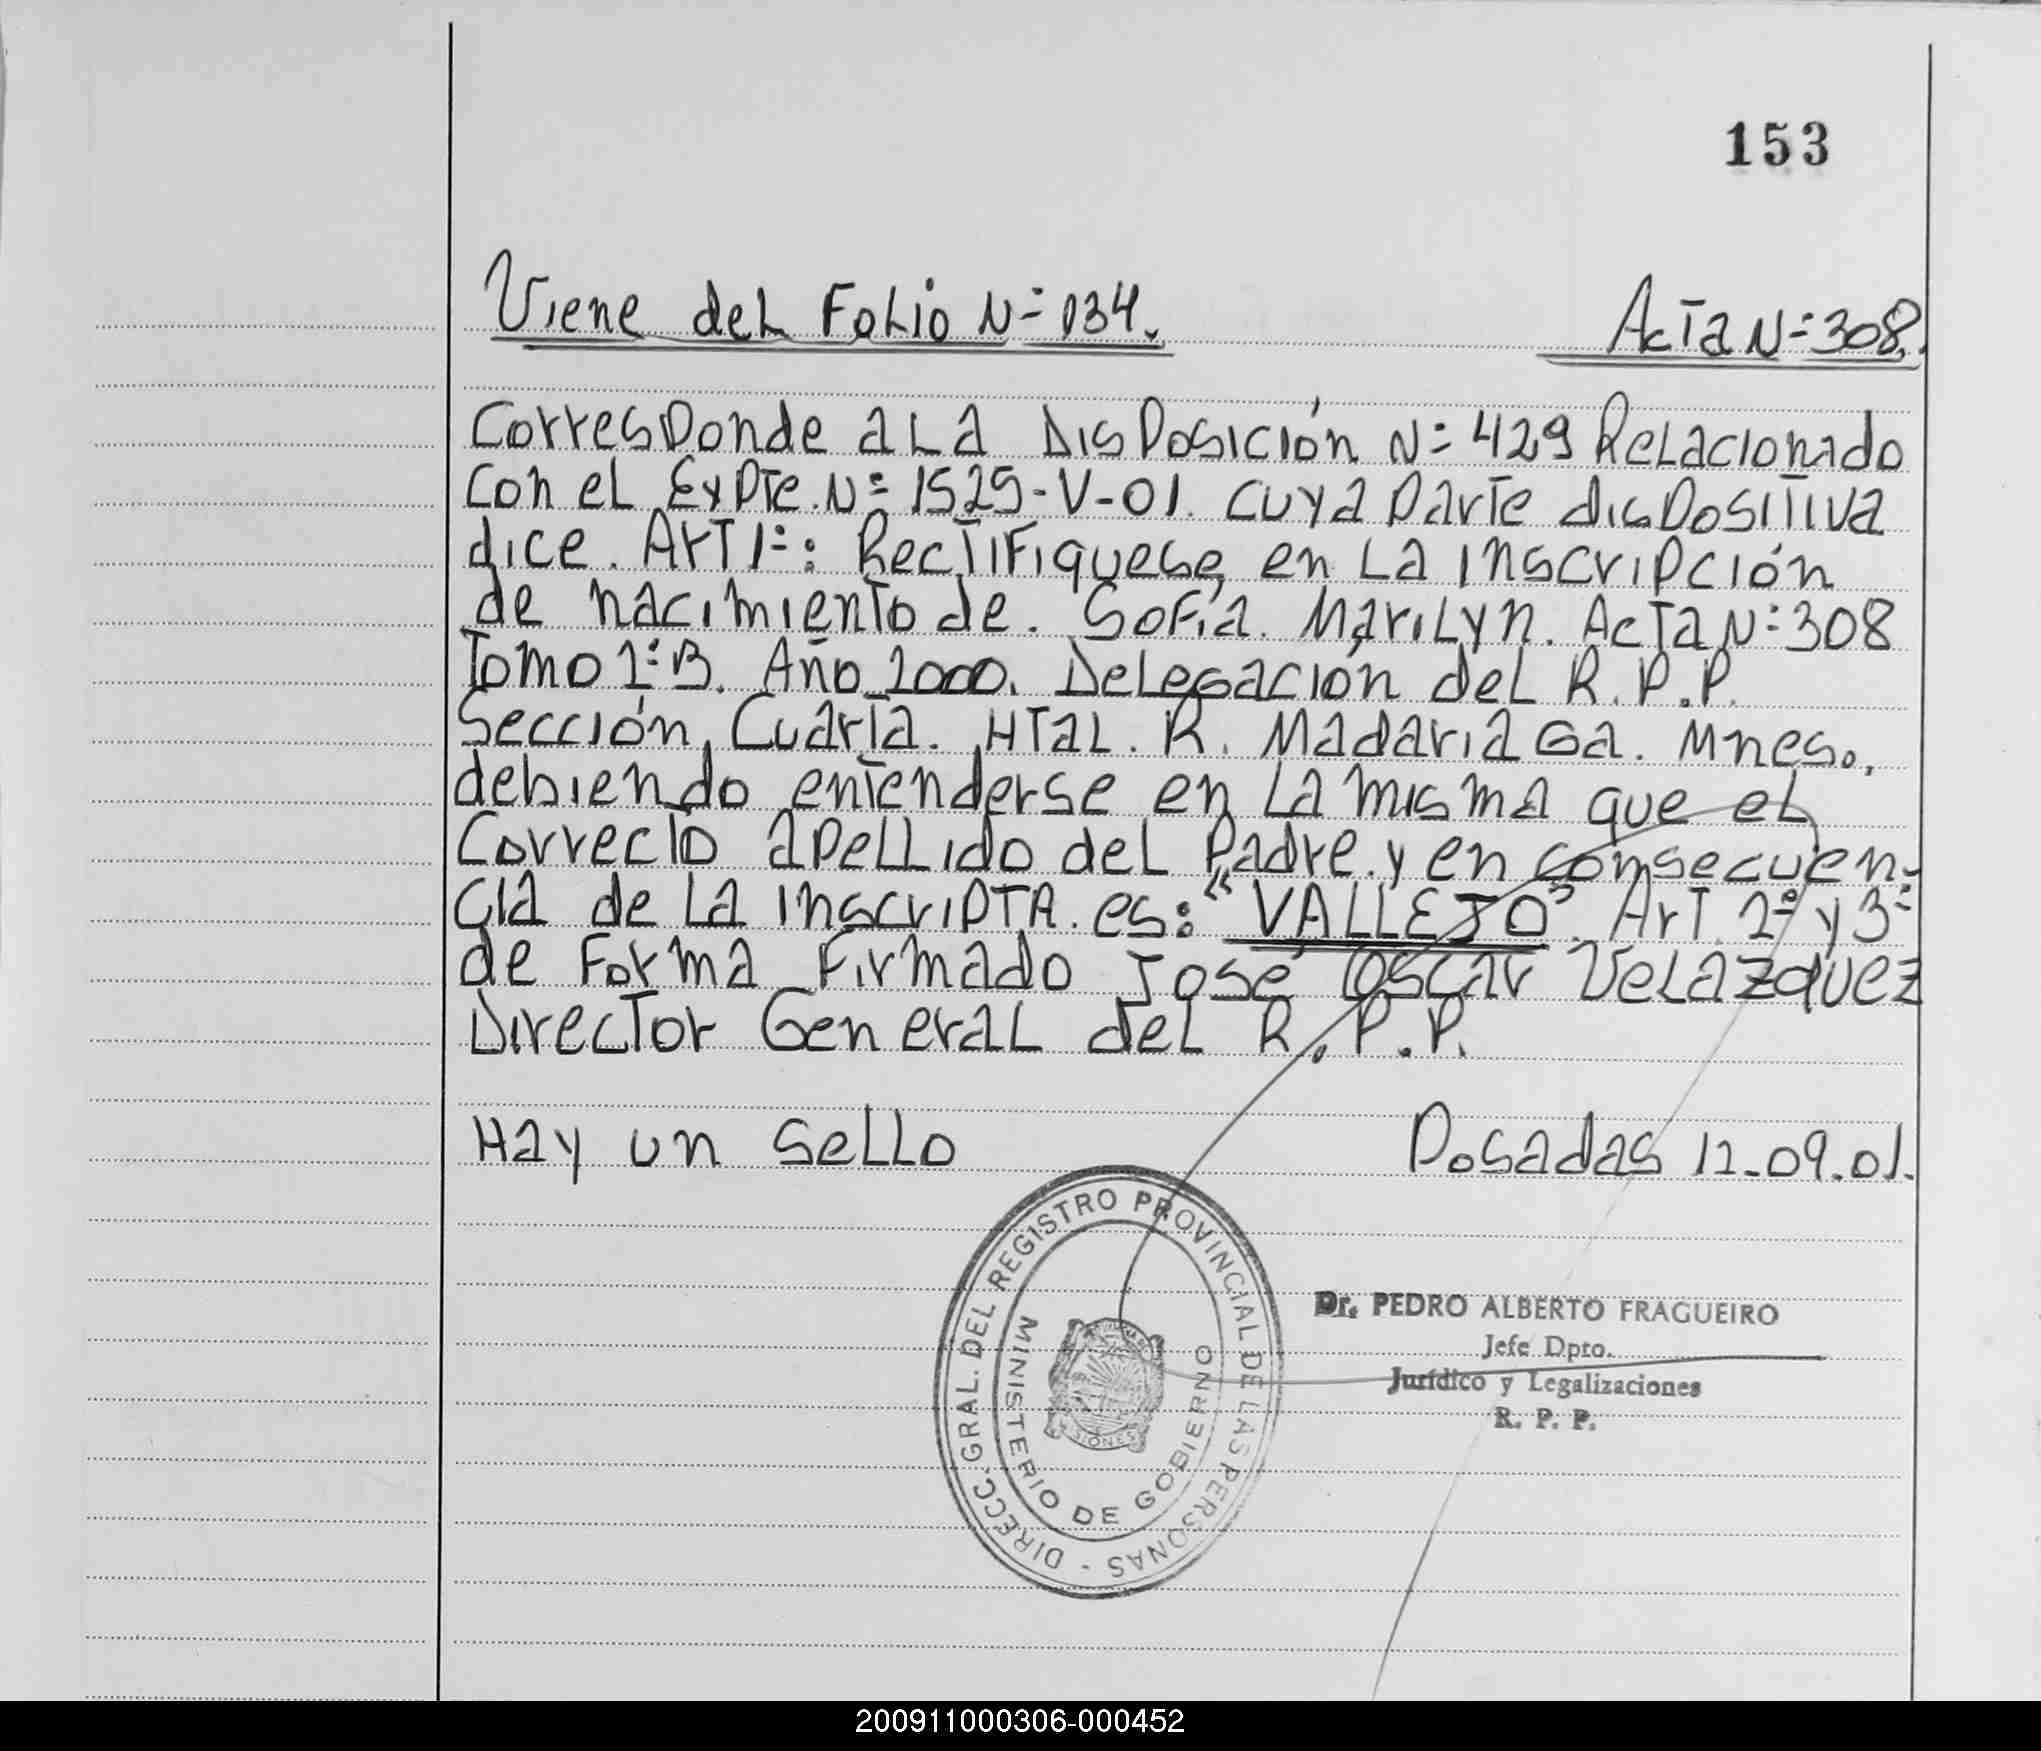 153
Viene del Folio Nº 134. Acta Nº 308.
Corresponde a La Disposición Nº 429 Relacionado
con el Expte. Nº 1525-V-01. cuya parte dispositiva
dice. Art 1º: Rectifiquese en La inscripción
de nacimiento de. Sofía. Marilyn. Acta Nº 308
Tomo 1º B. Año 2000. Delegación del R.P.P.
Sección Cuarta. Htal. R. Madariaga. Mnes.,
debiendo entenderse en La misma que el
Correcto apellido del Padre y en consecuen-
cia de La inscripta. es: "VALLEJO". Art. 2º y 3º
de Forma Firmado José Oscar Velazquez
Director General del R.P.P.
Hay un sello Posadas 12.09.01.
DIRECC. GRAL. DEL REGISTRO PROVINCIAL DE LAS PERSONAS -
MINISTERIO DE GOBIERNO
MISIONES
Dr. PEDRO ALBERTO FRAGUEIRO
Jefe Dpto.
Jurídico y Legalizaciones
R. P. P.
200911000306-000452